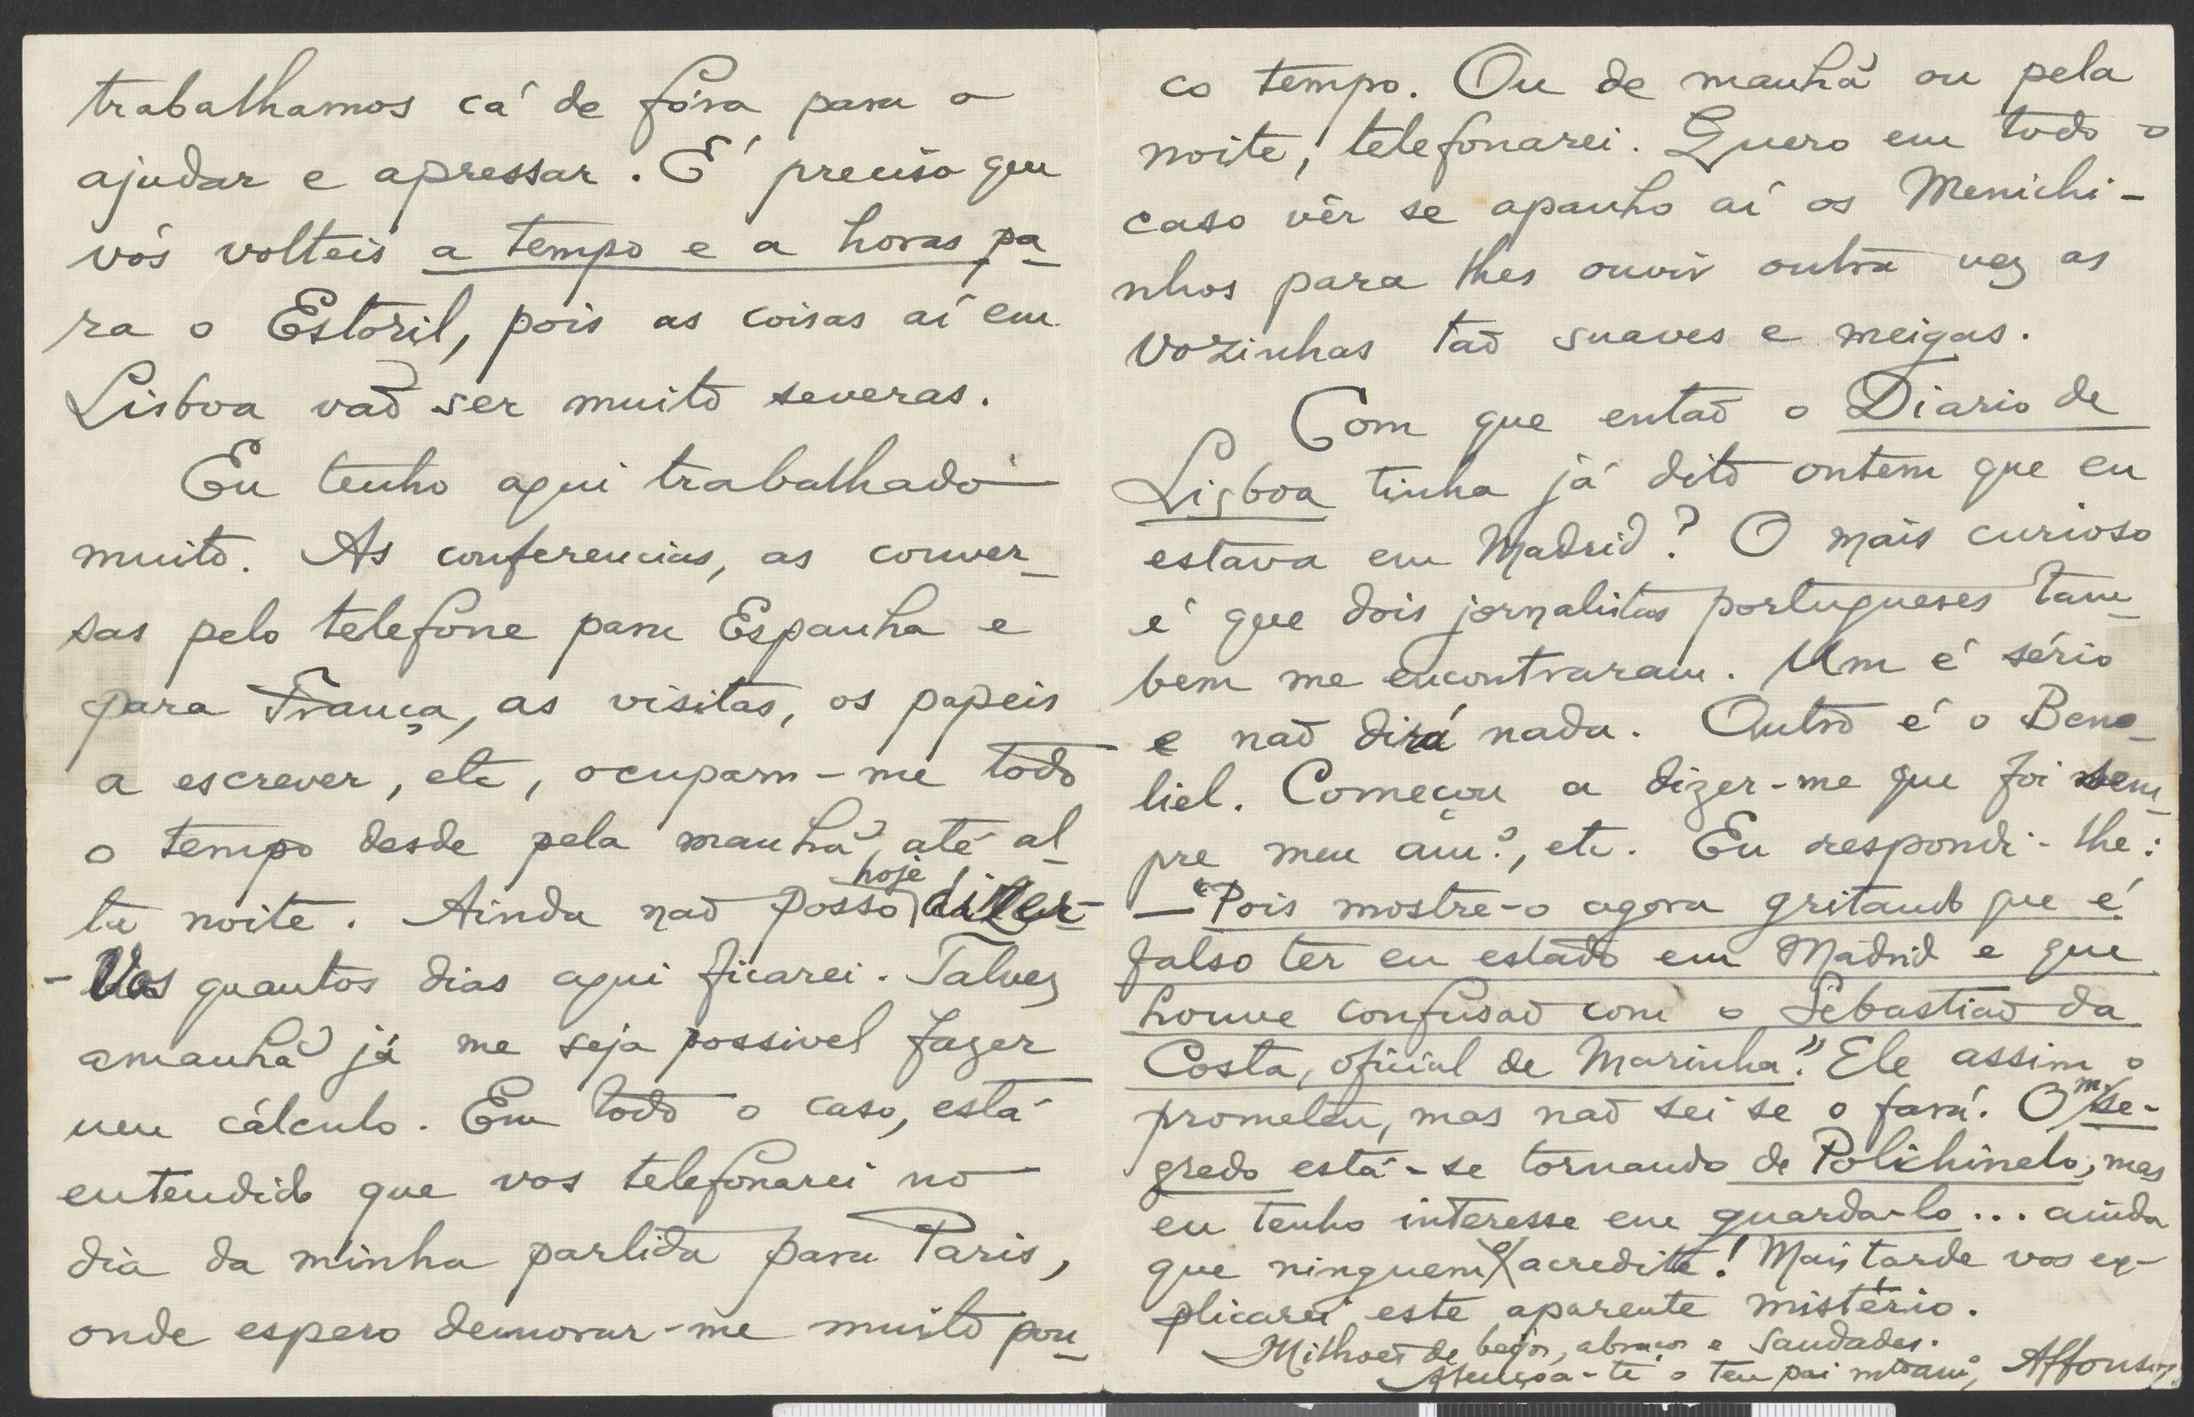 trabalhamos cá de fóra para o
ajudar e apressar. É preciso que
vós volteis a tempo e a horas pa-
ra o Estoril, pois as coisas aí em
Lisboa vaõ ser muito severas.
Eu tenho aqui trabalhado
muito. As conferencias, as conver-
sas pelo telefone para Espanha e
para França, as visitas, os papeis
a escrever, etc, ocupam-me todo
o tempo desde pela manhã até al-
ta noite. Ainda naõ posso hoje dizer-
-vos quantos dias aqui ficarei. Talvez
amanhã já me seja possivel fazer
um cálculo. Em todo o caso, está
entendido que vos telefonarei no
dia da minha partida para Paris,
onde espero demorar-me muito pou-
co tempo. Ou de manhã ou pela
noite, telefonarei. Quero em todo o
caso vêr se apanho aí os Menichi-
nhos para lhes ouvir outra vez as
vozinhas taõ suaves e meigas.
Com que entaõ o Diario de
Lisboa tinha já dito ontem que eu
estava em Madrid? O mais curioso
é que dois jornalistas portugueses tam-
bem me encontraram. Um é sério
e naõ dirá nada. Outro é o Beno-
liel. Começou a dizer-me que foi sem-
pre meu am.º, etc. Eu respondi-lhe:
— "Pois mostre-o agora gritando que é
falso ter eu estado em Madrid e que
houve confusaõ com o Sebastiaõ da
Costa, oficial de Marinha." Ele assim o
prometeu, mas naõ sei se o fará. O m/ se-
gredo está-se tornando de Polichinelo, mas
eu tenho interesse em guarda-lo... ainda
que ninguem o acredite! Mais tarde vos ex-
plicarei este aparente mistério.
Milhoes de beijos, abraços e saudades.
Abençoa-te o teu pai m.to am.º, Affonso